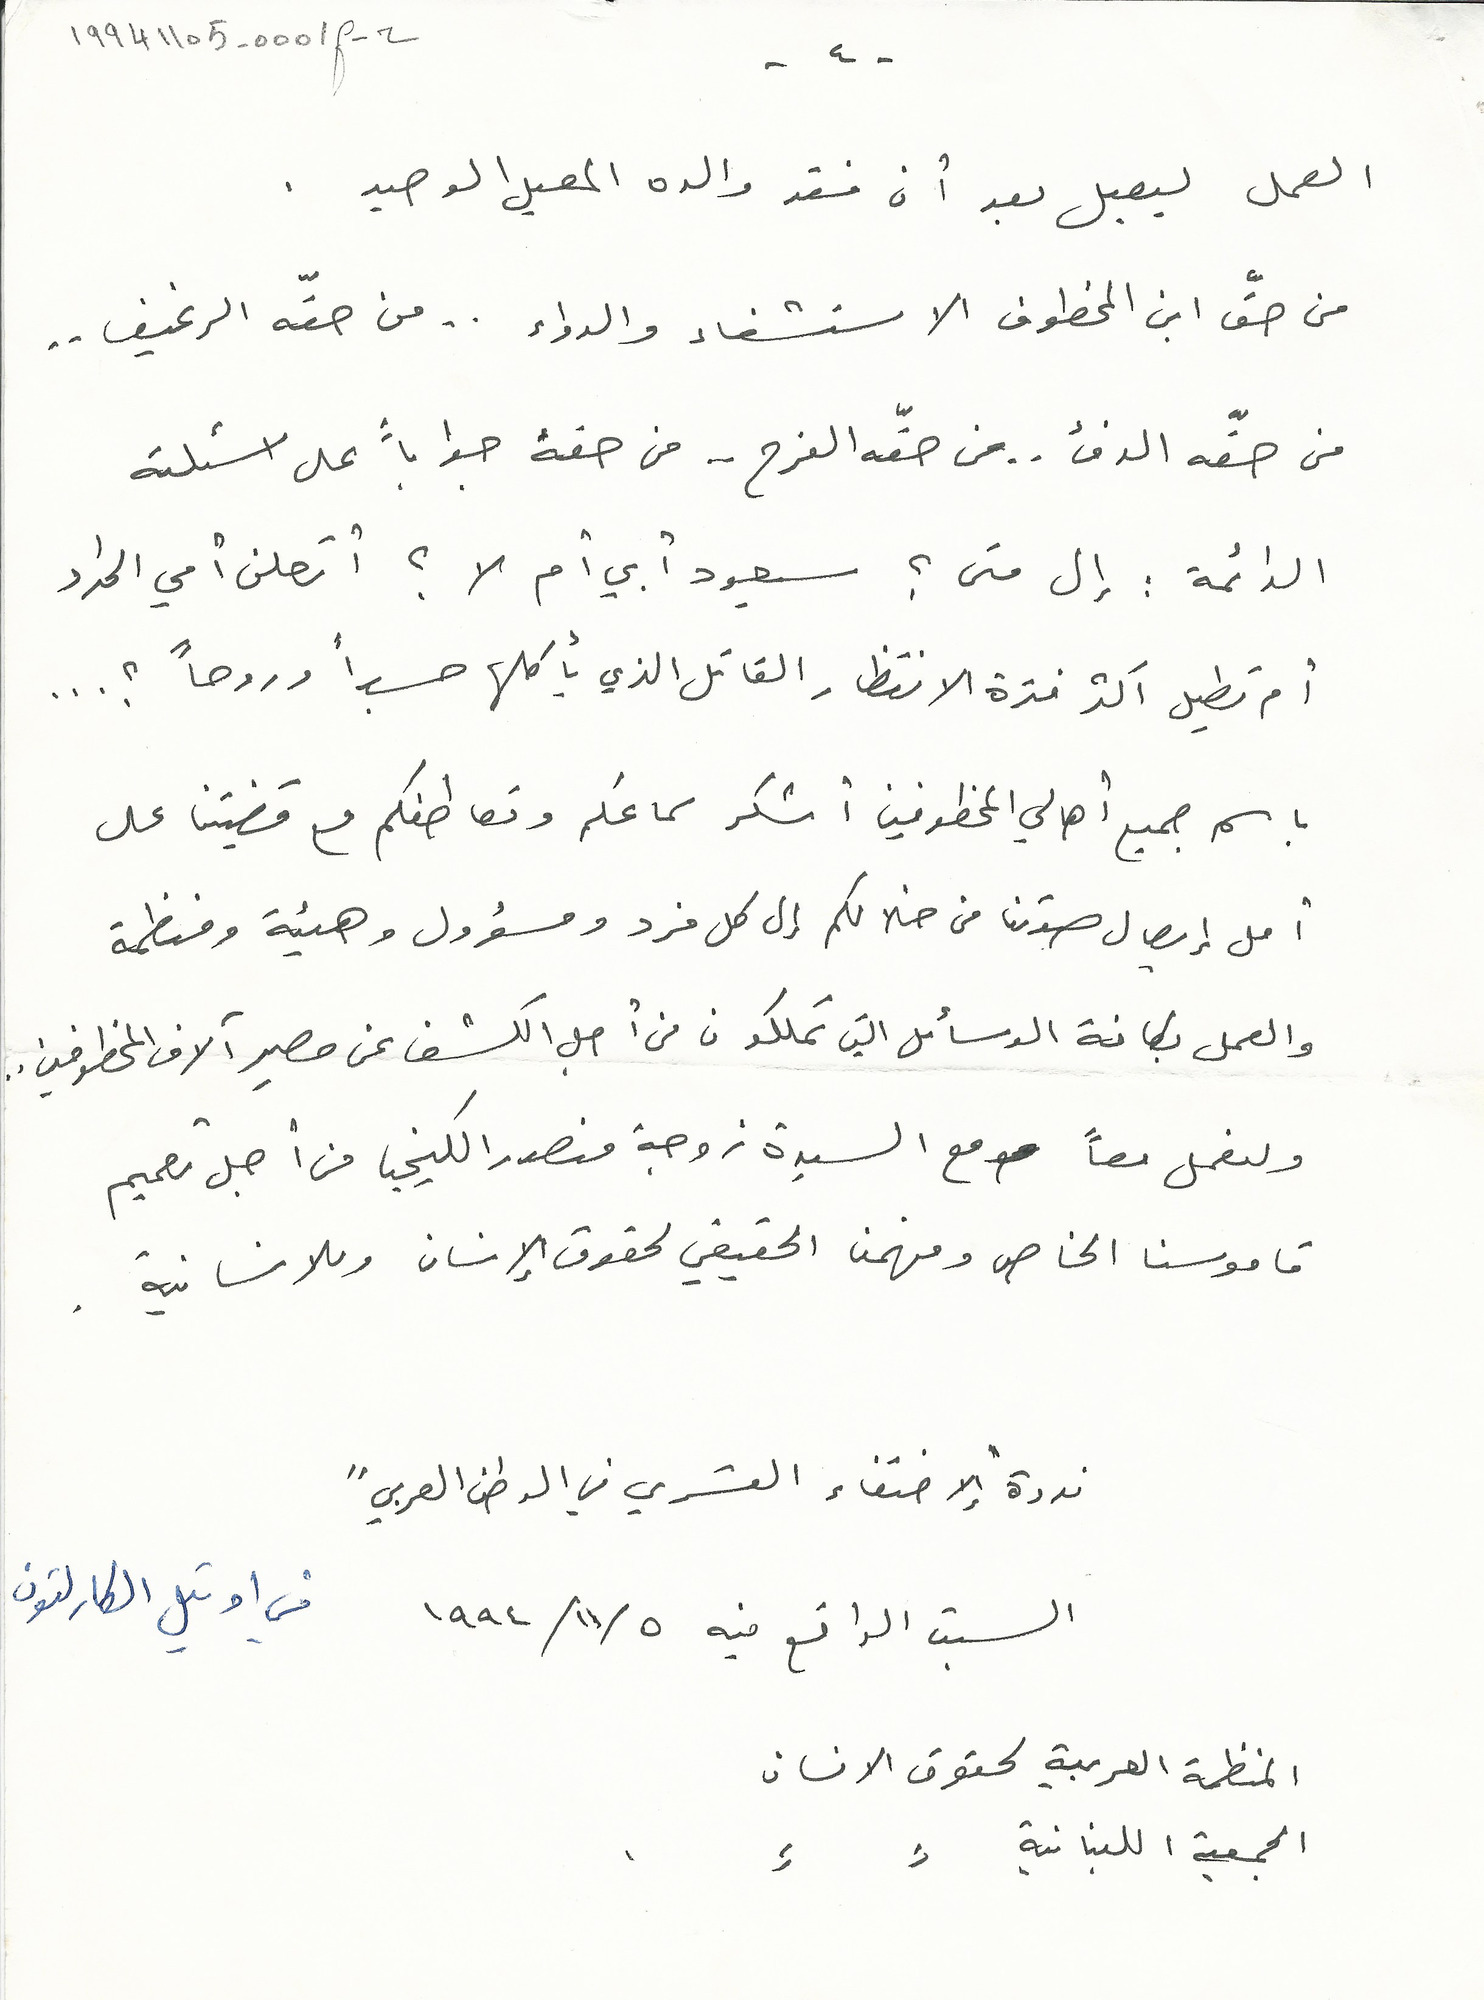 19941105-0001p-2
- ٤ -
العمل ليعيل بعد أن فقد والده المعيل الوحيد .
من حقّ ابن المخطوف الاستشفاء والدواء .. من حقّه الرغيف ..
من حقّه الدفئ .. من حقّه الفرح .. من حقه جواباً على اسئلته
الدائمة : إلى متى ؟ سيعود أبي أم لا ؟ أتعلن أمي الحداد
أم تطيل أكثر فترة الانتظار القاتل الذي يأكلها جسداً وروحاً ؟ ...
باسم جميع أهالي المخطوفين أشكر سماعكم وتعاطفكم مع قضيتنا على
أمل إيصال صوتنا من خلالكم إلى كل فرد ومسؤول وهيئة ومنظمة
والعمل بكافة الوسائل التي تملكون من أجل الكشف عن مصير آلاف المخطوفين ..
ولنعمل معاً ومع السيدة زوجة منصور الكيخيا من أجل تعميم
قاموسنا الخاص وفهمنا الحقيقي لحقوق الإنسان وللانسانية .
ندوة "الإختفاء القسري في الوطن العربي"
السبت الواقع فيه ٥/١١/١٩٩٤ في اوتيل الكارلتون
المنظمة العربية لحقوق الانسان
الجمعية اللبنانية ״ ״ .